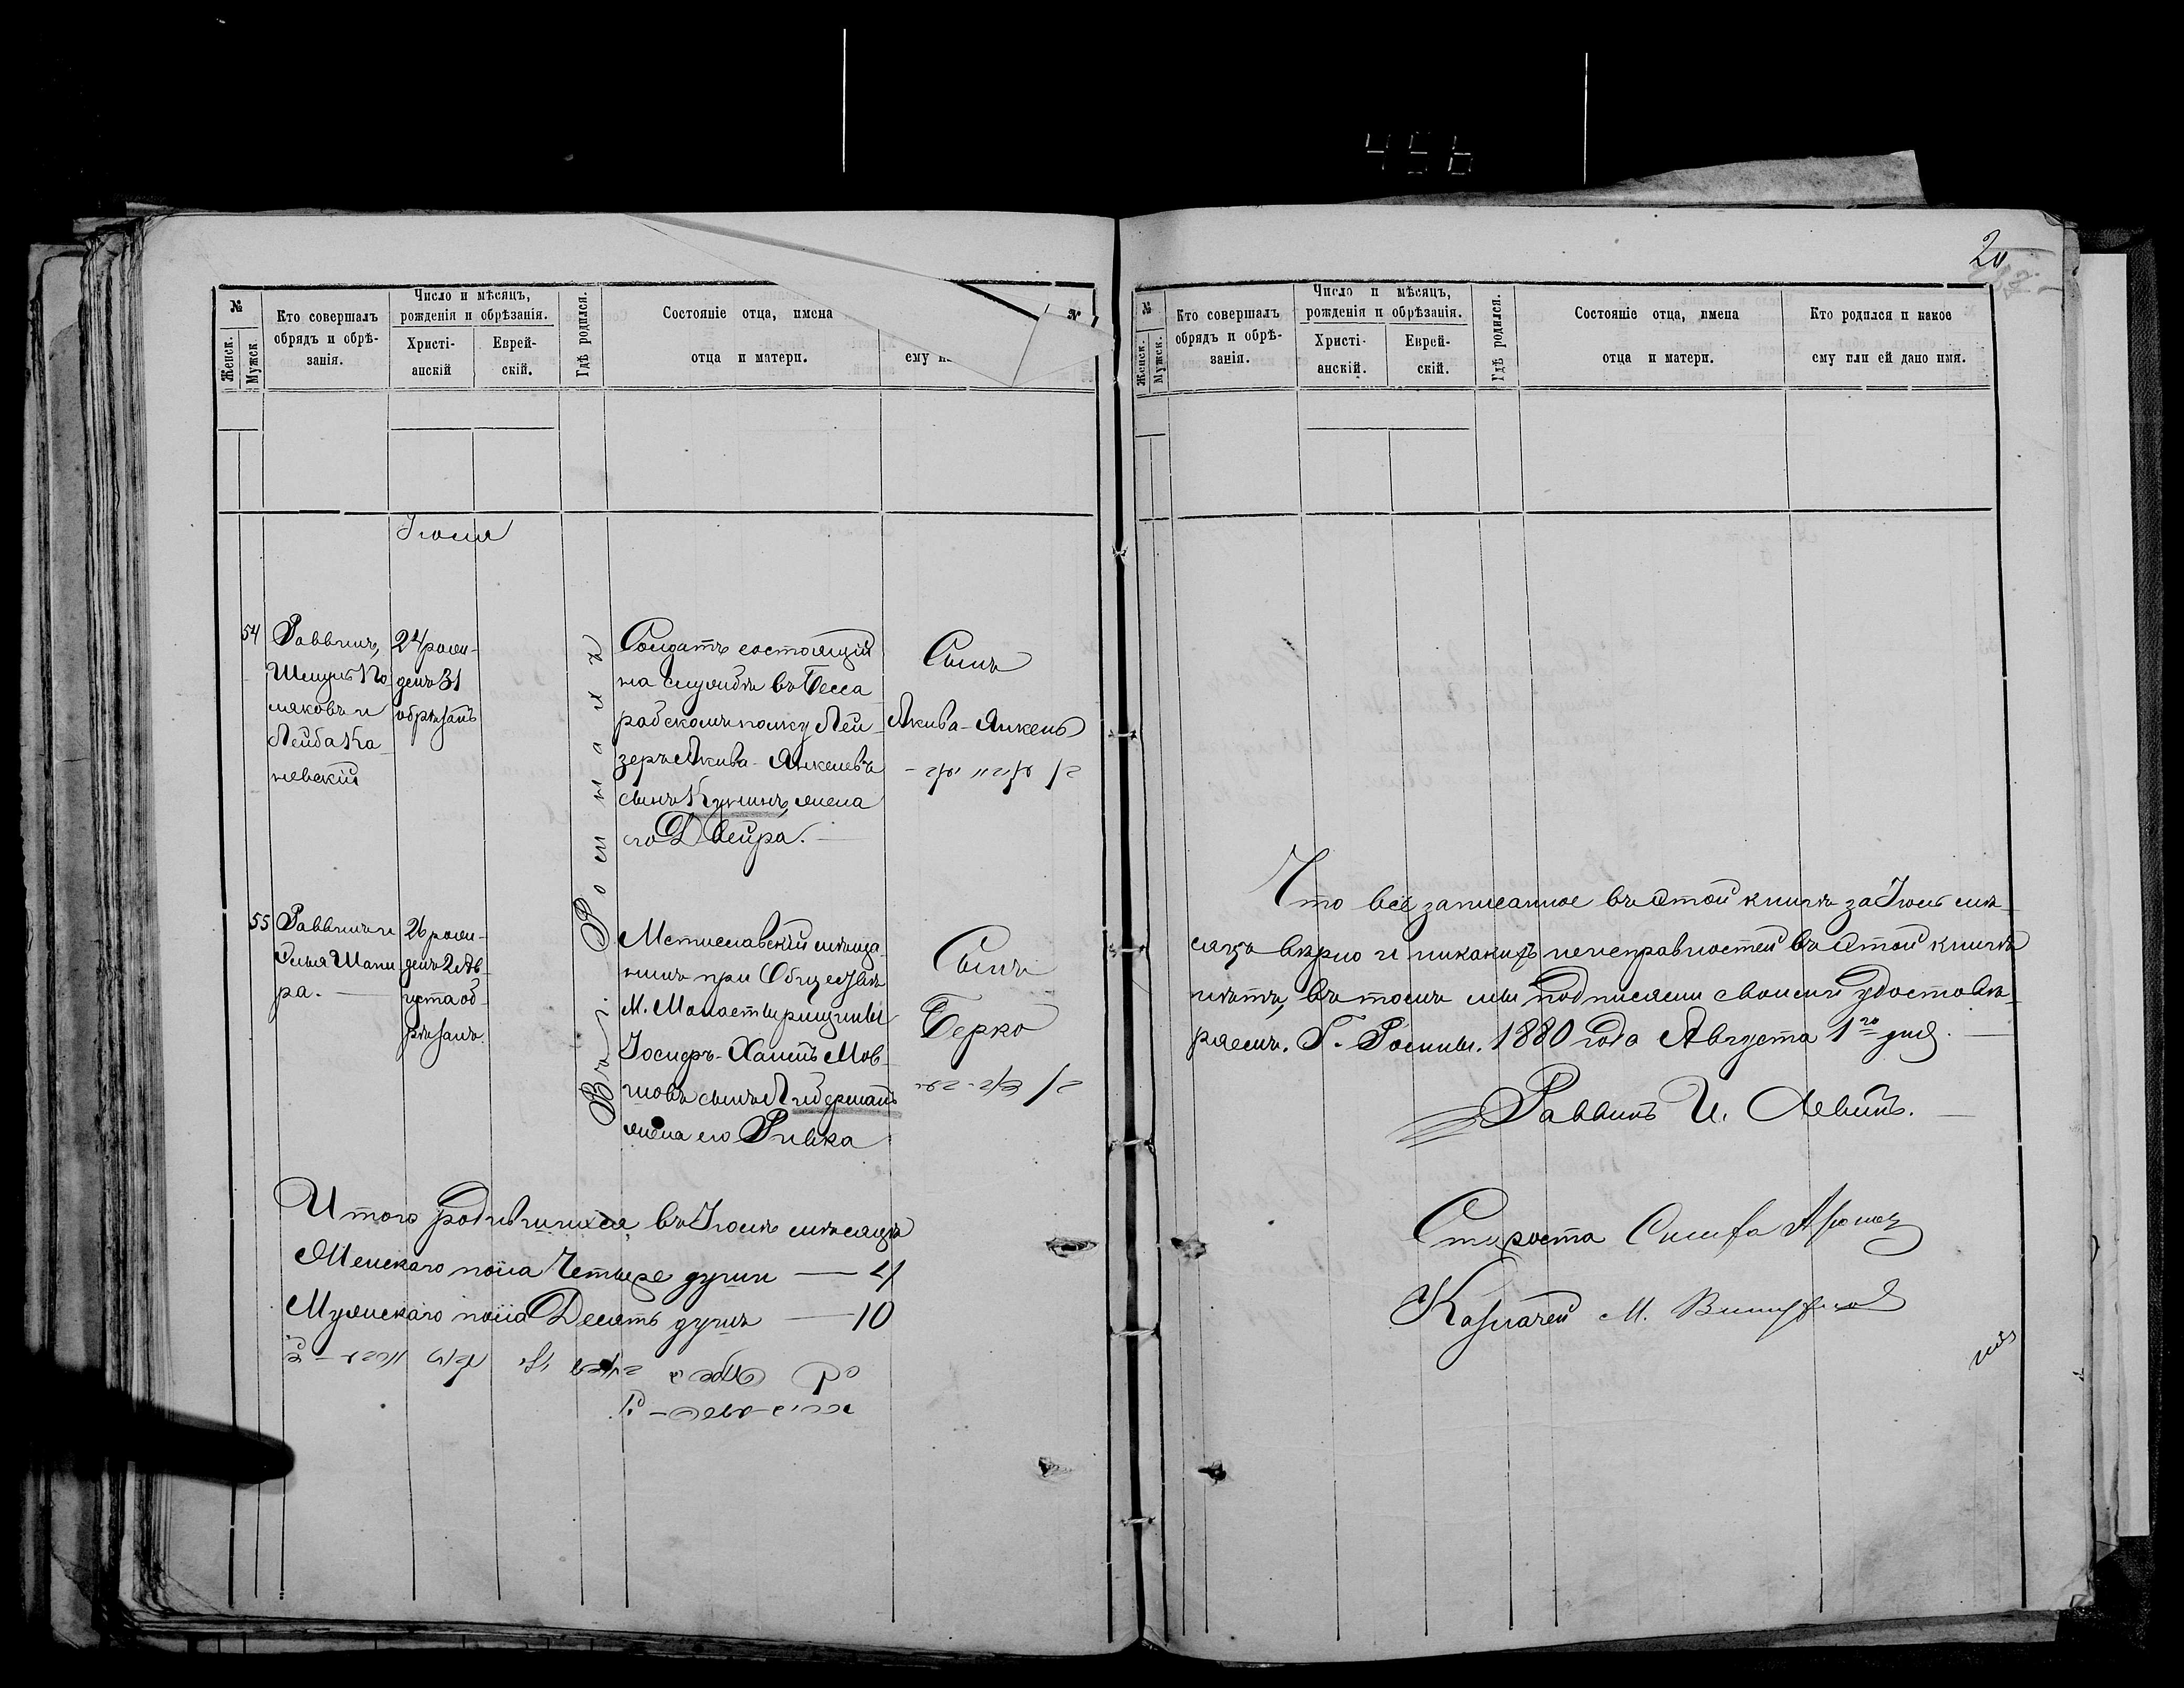 456
20
№
Женск.
Мужск.
Кто совершалъ
обрядъ и обрѣ-
занія.
Число и мѣсяцъ,
рожденія и обрѣзанія.
Христі-
анскій
Еврей-
скій.
Гдѣ родился.
Состояніе отца, имена
отца и матери.
ему
№
Іюля
54
Раввинъ,
Шмуль По
ляковъ и
Лейба Ка
невскій
24 рож-
денъ 31
обрѣзанъ
Въ г. Рославлѣ
Солдатъ состоящій
на службѣ въ Бесса
рабскомъ полку Лей-
зеръ Акива-Янкелевъ
сынъ Кунинъ, жена
его Двейра.
Сынъ
Акива-Янкель
55
Раввинъ и
Илья Шапи
ра.
26 рож-
денъ 2 Ав-
густа об-
рѣзанъ
Мстиславскій мѣща
нинъ при Обществѣ
М. Монастырщины
Іосифъ-Хаимъ Мов-
шовъ сынъ Либерманъ
жена его Ривка
Сынъ
Берко
Итого родившихся, въ Іюлѣ мѣсяцѣ
Женскаго пола Четыре души — 4
Мужскаго пола Десять душъ — 10
№
Женск.
Мужск.
Кто совершалъ
обрядъ и обрѣ-
занія.
Число и мѣсяцъ,
рожденія и обрѣзанія.
Христі-
анскій.
Еврей-
скій.
Гдѣ родился.
Состояніе отца, имена
отца и матери.
Кто родился и какое
ему или ей дано имя.
Что всё записанное въ этой книгѣ за Іюль мѣ-
сяцъ вѣрно и никакихъ неисправностей въ этой книгѣ
нѣтъ, въ томъ мы подписями своими удостовѣ-
ряемъ. Г. 1880 года Августа 1го дня.
Раввинъ И. Левинъ.
Староста
Казначей М.